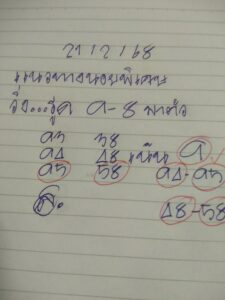 21/2/68
แนวทางหวยพิเศษ
วิ่ง...รูด ๑-8 พาตัว
๑3 38
๑4 48 เน้น ๑.
๑5 58 ๑4-๑5
48-58